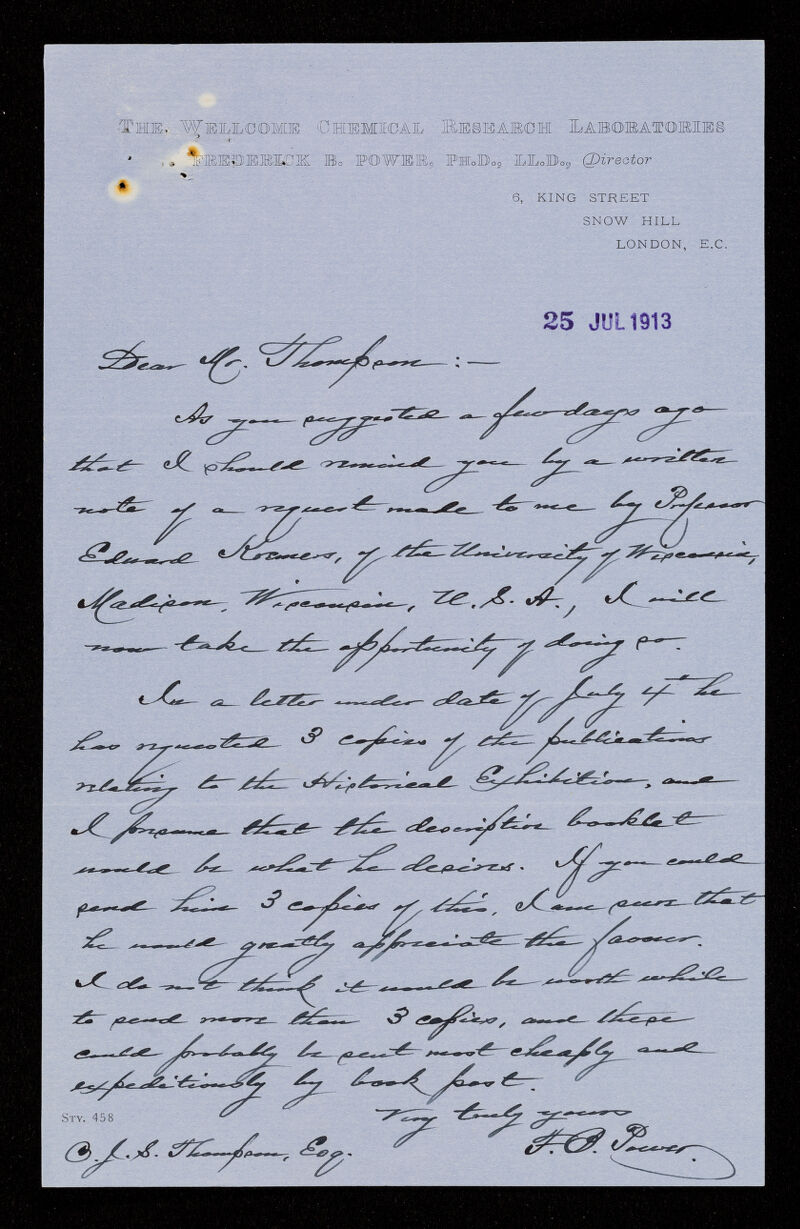 THE WELLCOME CHEMICAL RESEARCH LABORATORIES
FREDERICK B. POWER, PH.D., LL.D., Director
6, KING STREET
SNOW HILL
LONDON, E.C.
25 JUL 1913
Dear Mr. Thompson :—
As you suggested a few days ago
that I should remind you by a written
note of a request made to me by Professor
Edward Kremers, of the University of Wisconsin,
Madison, Wisconsin, U.S.A., I will
now take the opportunity of doing so.
In a letter under date of July 4th he
has requested 3 copies of the publications
relating to the Historical Exhibition, and
I presume that the descriptive booklet
would be what he desires. If you could
send him 3 copies of this, I am sure that
he would greatly appreciate the favour.
I do not think it would be worth while
to send more than 3 copies, and these
could probably be sent most cheaply and
expeditiously by book post.
Very truly yours
F. B. Power.
STY. 458
C. J. S. Thompson, Esq.